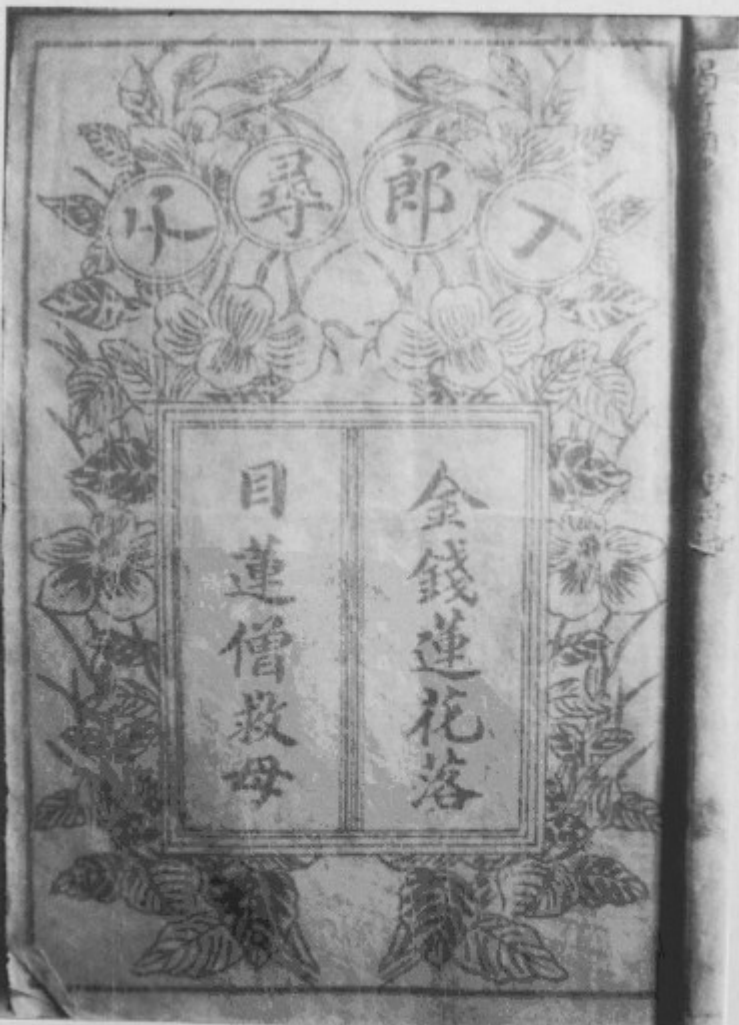 丁郎尋父
金錢蓮花落
目蓮僧救母